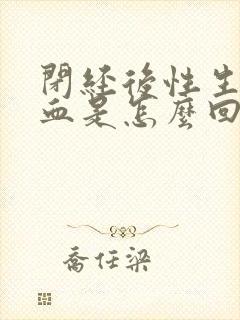 閉經後性生
血是怎麼回
喬任梁